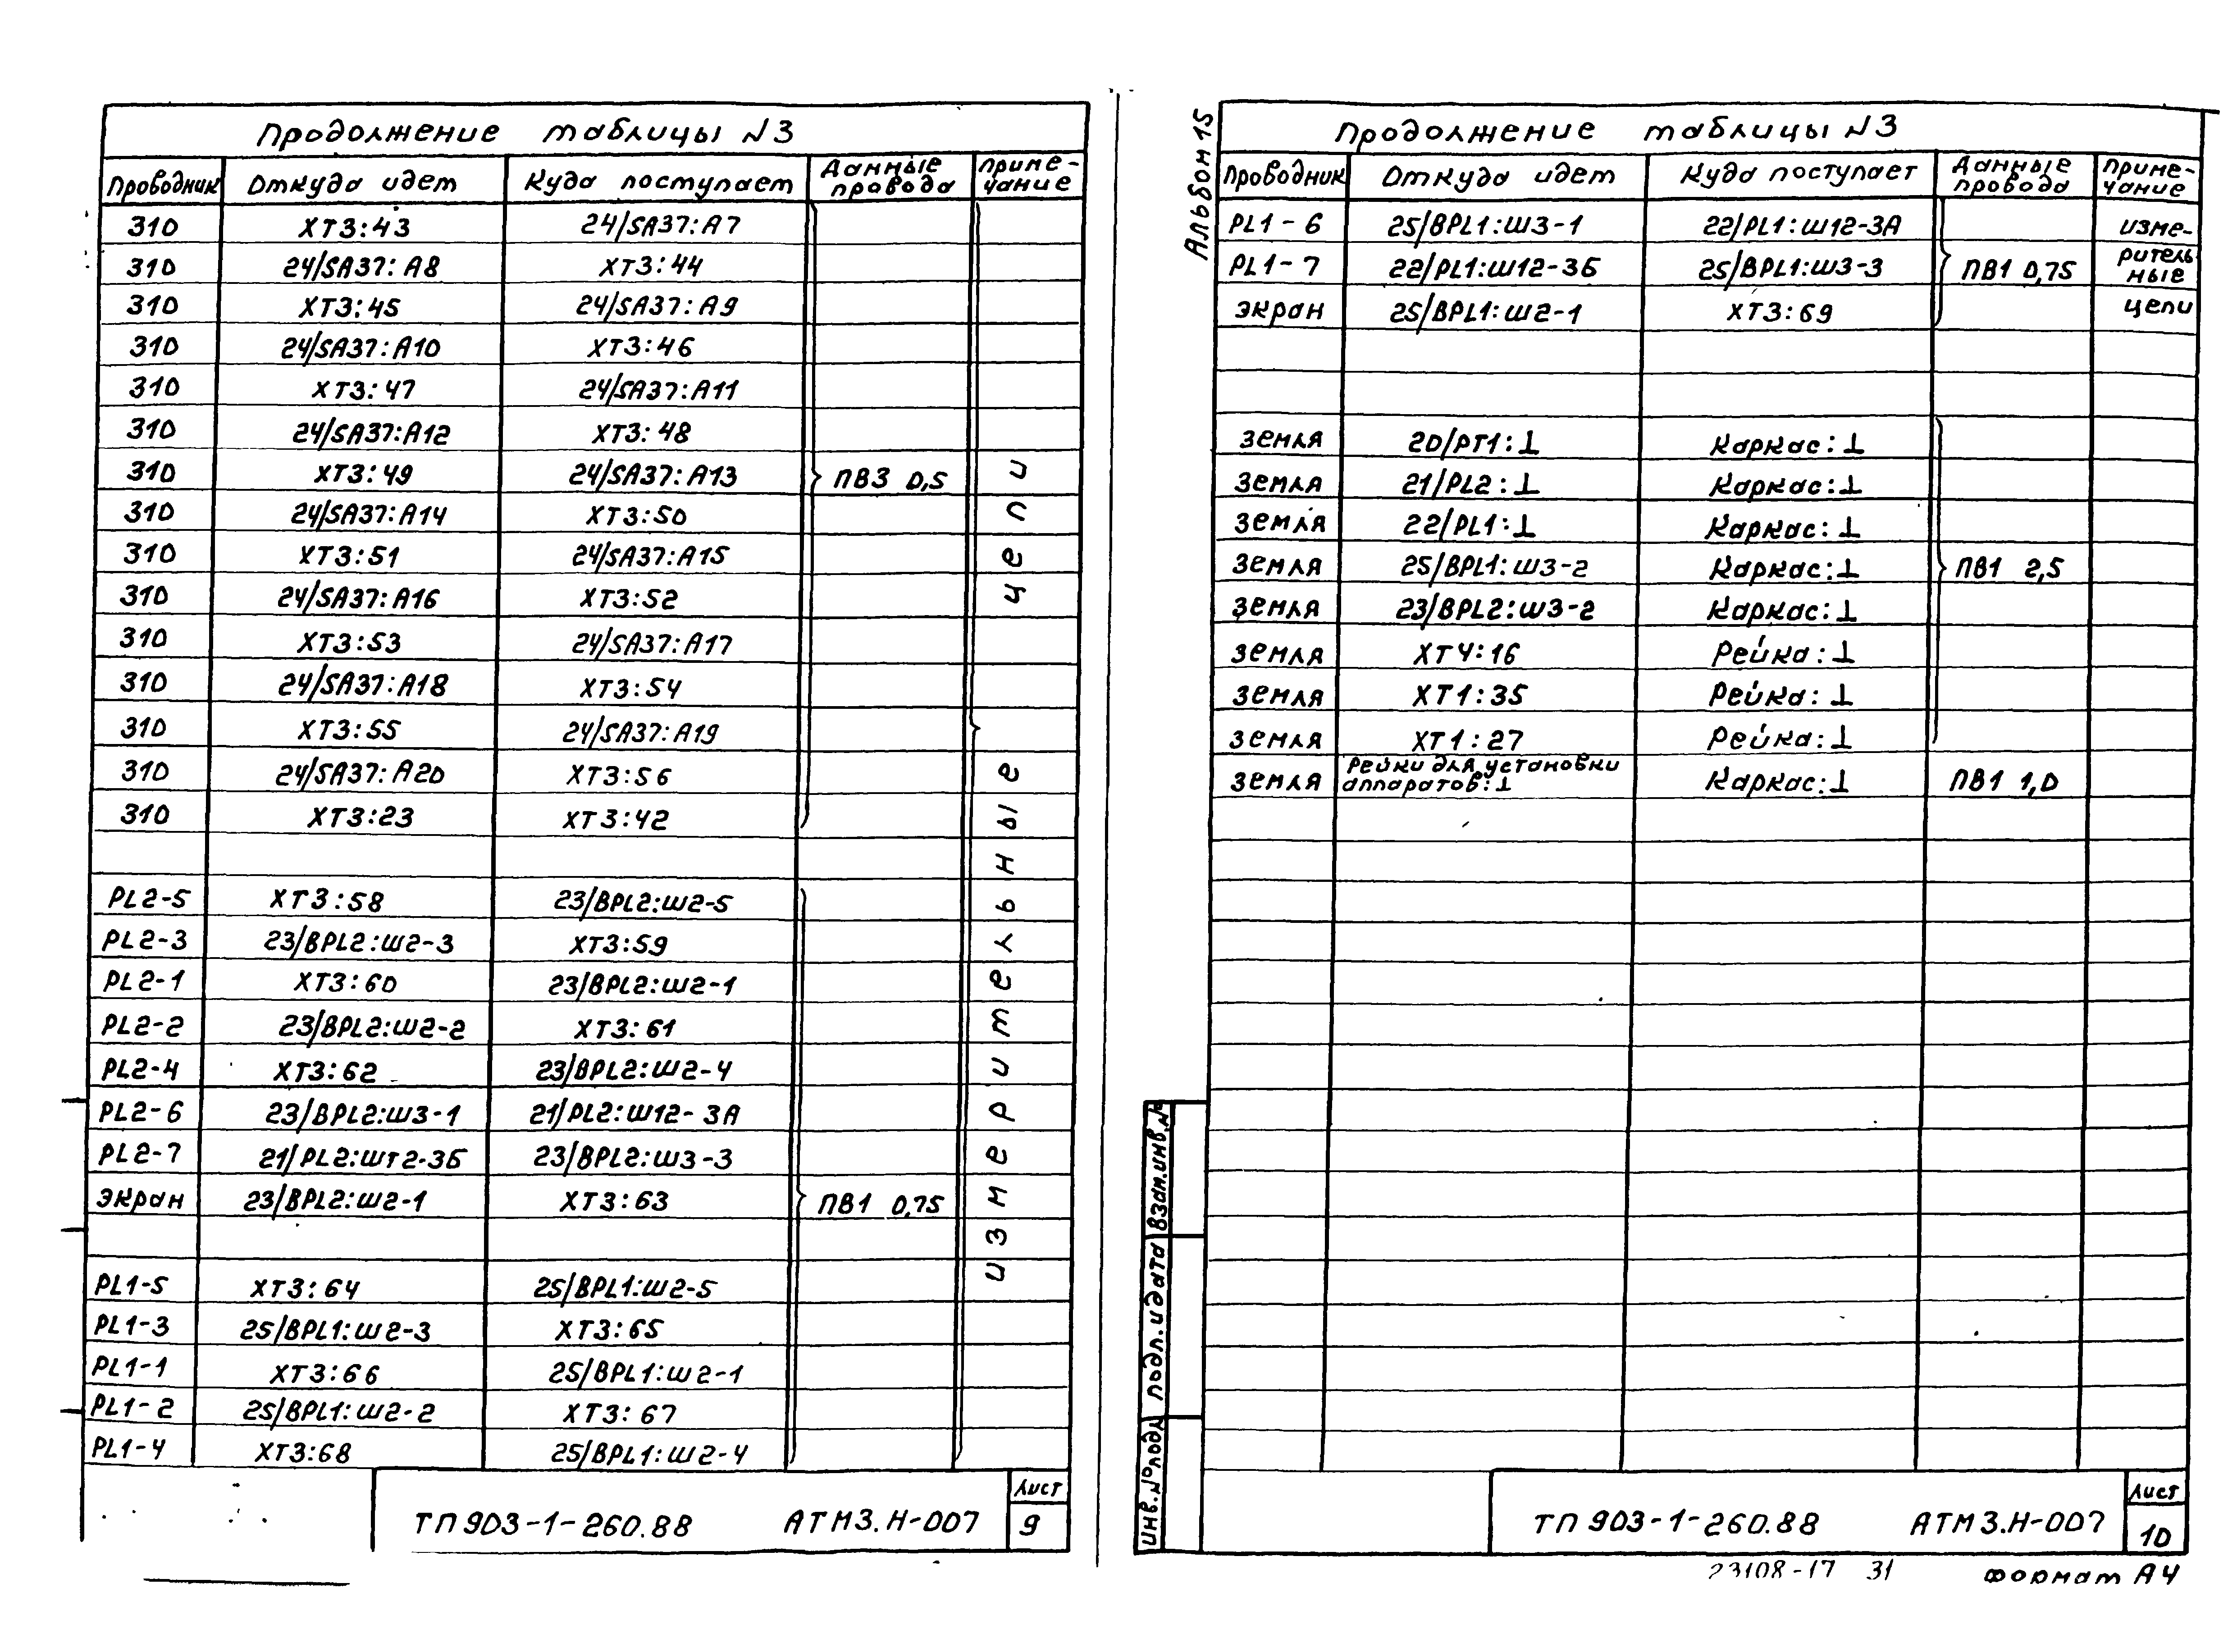 Продолжение таблицы N3
Проводник Откуда идет Куда поступает Данные провода Приме-чание
310 ХТ3:43 24/SA37:A7
310 24/SA37:A8 ХТ3:44
310 ХТ3:45 24/SA37:A9
310 24/SA37:A10 ХТ3:46
310 ХТ3:47 24/SA37:A11
310 24/SA37:A12 ХТ3:48
310 ХТ3:49 24/SA37:A13 ПВ3 0,5
310 24/SA37:A14 ХТ3:50
310 ХТ3:51 24/SA37:A15
310 24/SA37:A16 ХТ3:52
310 ХТ3:53 24/SA37:A17
310 24/SA37:A18 ХТ3:54
310 ХТ3:55 24/SA37:A19
310 24/SA37:A20 ХТ3:56
310 ХТ3:23 ХТ3:42
PL2-5 ХТ3:58 23/BPL2:Ш2-5
PL2-3 23/BPL2:Ш2-3 ХТ3:59
PL2-1 ХТ3:60 23/BPL2:Ш2-1
PL2-2 23/BPL2:Ш2-2 ХТ3:61
PL2-4 ХТ3:62 23/BPL2:Ш2-4
PL2-6 23/BPL2:Ш3-1 21/PL2:Ш12-3А
PL2-7 21/PL2:ШТ2-3Б 23/BPL2:Ш3-3
экран 23/BPL2:Ш2-1 ХТ3:63 ПВ1 0,75
PL1-5 ХТ3:64 25/BPL1:Ш2-5
PL1-3 25/BPL1:Ш2-3 ХТ3:65
PL1-1 ХТ3:66 25/BPL1:Ш2-1
PL1-2 25/BPL1:Ш2-2 ХТ3:67
PL1-4 ХТ3:68 25/BPL1:Ш2-4
измерительные цепи
ТП 903-1-260.88 АТМ3.Н-007
Лист
9
Альбом 15
Продолжение таблицы N3
Проводник Откуда идет Куда поступает Данные провода Приме-чание
PL1-6 25/BPL1:Ш3-1 22/PL1:Ш12-3А изме-
PL1-7 22/PL1:Ш12-3Б 25/BPL1:Ш3-3 ПВ1 0,75 ритель-ные
экран 25/BPL1:Ш2-1 ХТ3:69 цепи
земля 20/РТ1:⊥ Каркас:⊥
земля 21/PL2:⊥ Каркас:⊥
земля 22/PL1:⊥ Каркас:⊥
земля 25/BPL1:Ш3-2 Каркас:⊥ ПВ1 2,5
земля 23/BPL2:Ш3-2 Каркас:⊥
земля ХТ4:16 Рейка:⊥
земля ХТ1:35 Рейка:⊥
земля ХТ1:27 Рейка:⊥
земля Рейки для установки аппаратов:⊥ Каркас:⊥ ПВ1 1,0
Инв.№подл Подп. и дата Взам.инв.№
ТП 903-1-260.88 АТМ3.Н-007
Лист
10
23108-17 31 формат А4